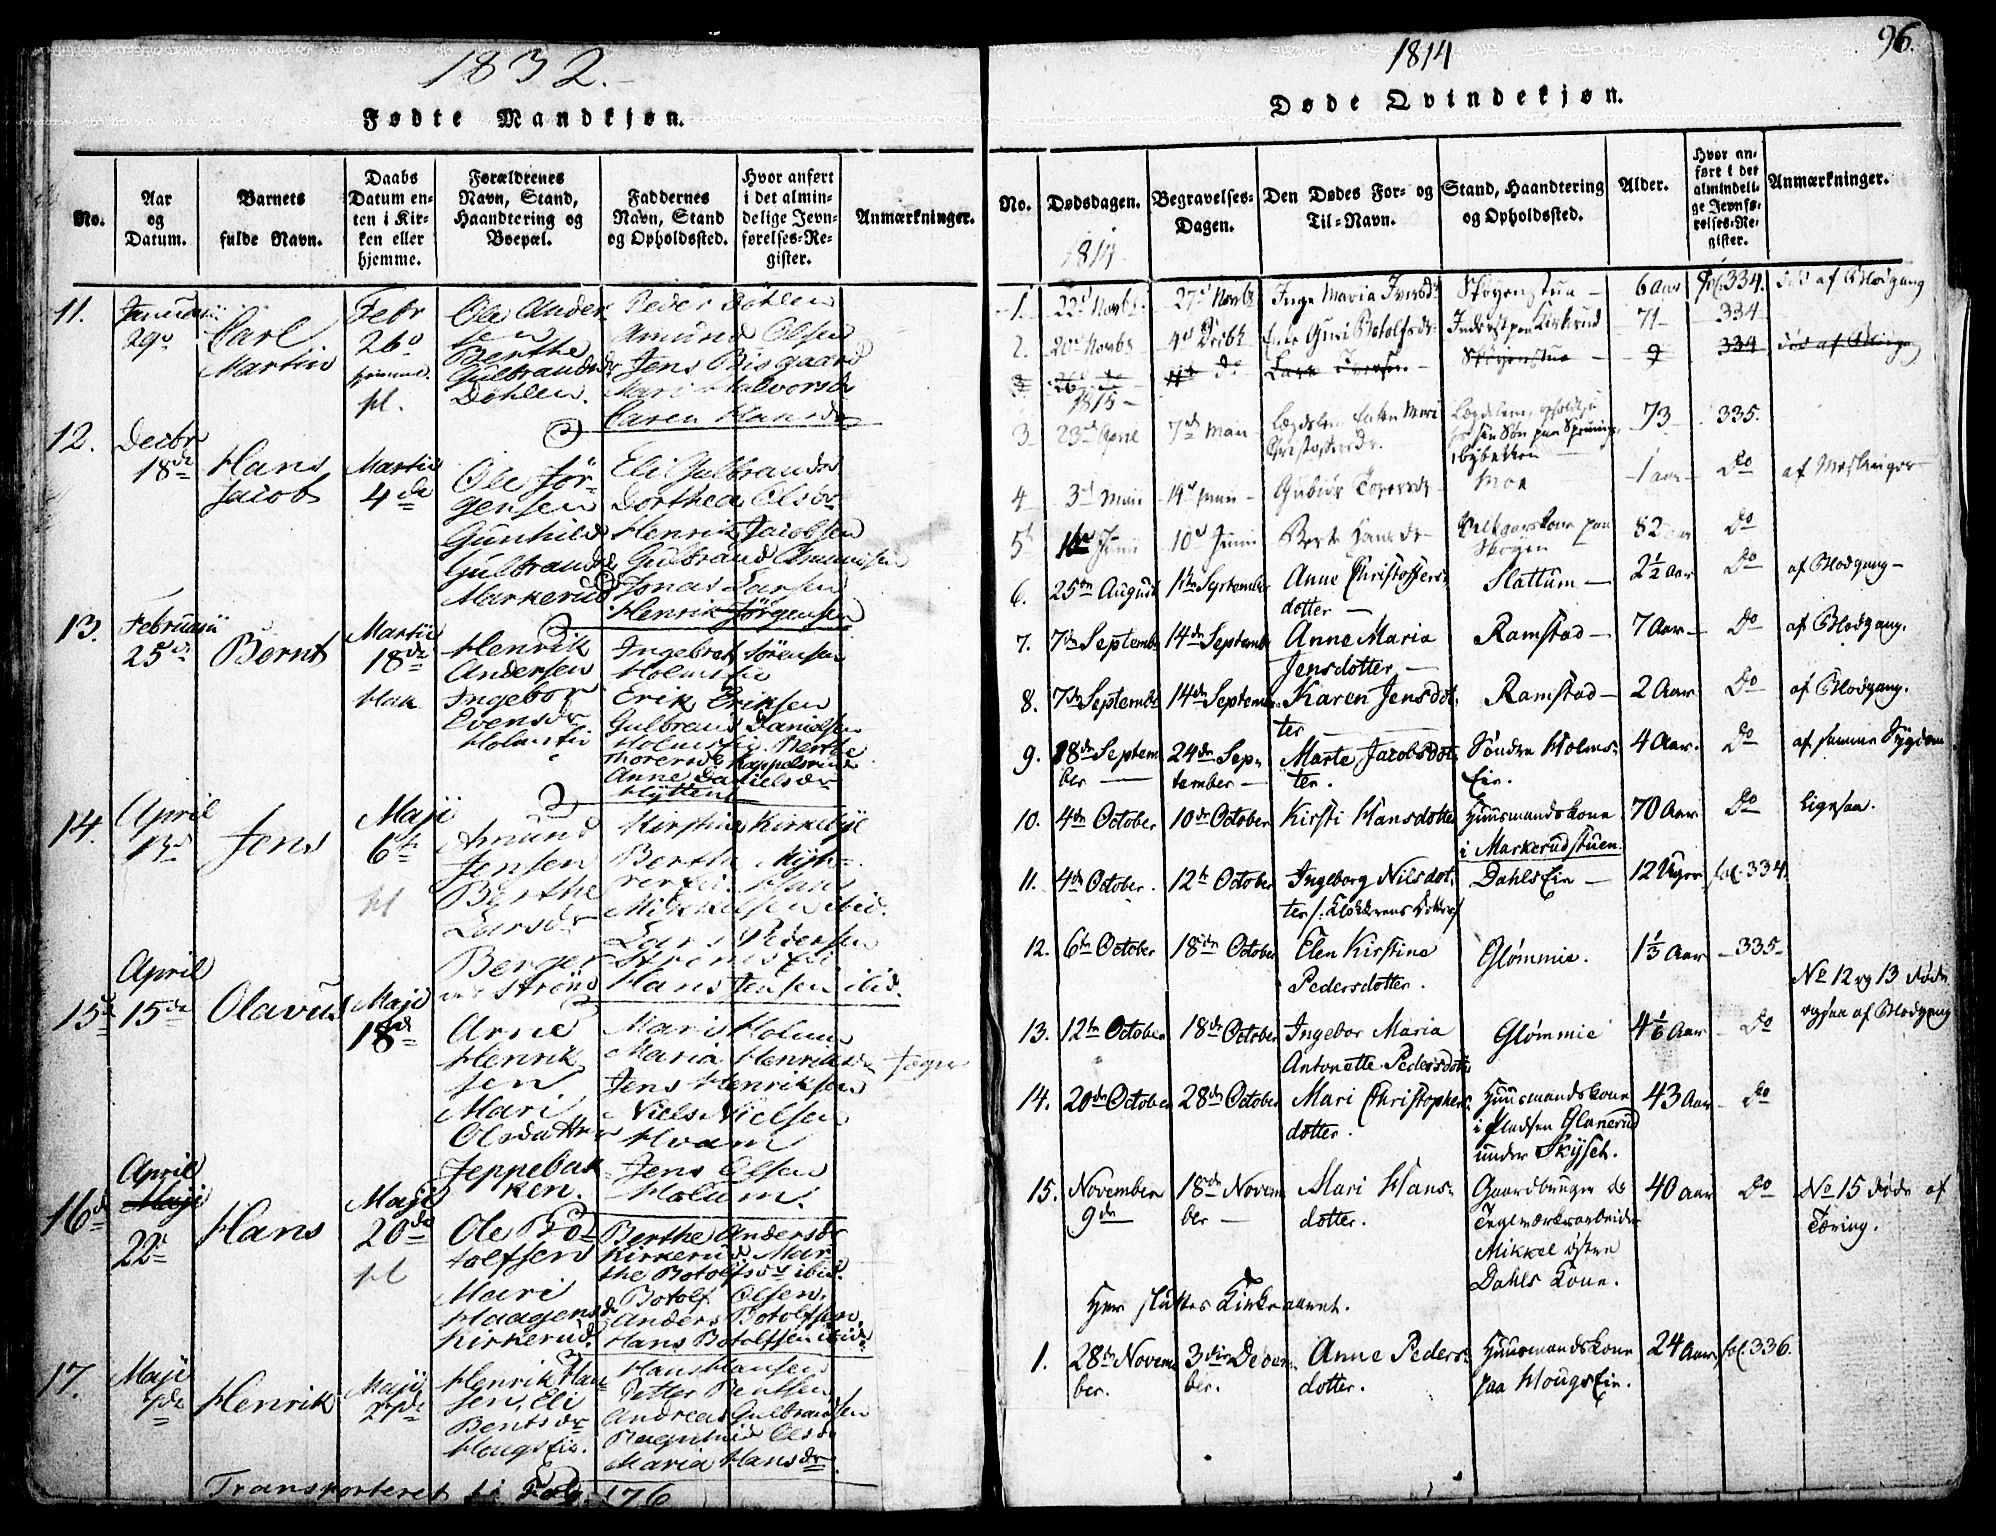 1832.
Fødte Mandkjøn.
No.
Aar
og
Datum.
Barnets
fulde Navn.
Daabs
Datum en-
ten i Kir-
ken eller
hjemme.
Forældrenes
Navn, Stand,
Haandtering og
Boepæl.
Faddernes
Navn, Stand
og Opholdssted.
Hvor anført
i det almin-
delige Jevn-
førelses-Re-
gister.
Anmærkninger.
11.
Januarii
29de
Carl
Martin
Febr
26de
hjemme.
Ole Ander
sen
Berthe
Gulbrandsdr
Dohlen.
Peder Dohlen
Amund Olsen
Jens Bisgaard
Mari Halvorsdr
Caren Hansdr
12.
Decbr
18de
Hans
Jacob
Martii
4de
Ole Jör-
gensen
Gunhild
Gulbrandsdr
Markerud
Eli Gulbrandsdr
Dorthea Olsdr
Henrik Jacobsen
Gulbrand
Jonas Larsen
Henrik Jörgensen
13.
Februarii
25de
Bernt
Martii
18de
Henrik
Andersen
Ingebor
Evensdr
Holmsfie
Ingebret Sörensen
Holmsfie
Erik Eriksen
Gulbrand Danielsen
Holmsfie. Berthe
Thorersdr
Anne Danielsdr
Hyttene
14.
April
13de
Jens
Maji
6te
Amund
Jensen
Berthe
Larsdr
Berger
Strönd
Kirstine Kirkebye
Berthe
Mikkelsen ibid.
Lars Pedersen
Hans Jensen ibid.
15de
April
15de
Olavus
Maji
18de
Arne
Henrik
sen
Mari
Olsdatter
Jeppebak
ken.
Maria Holum
Maria Henriksdr
Jens Henriksen
Niels Nielsen
Hvam
Jens Olsen
Holum.
16de
April
Maji
22de
Hans
Maji
20de
Ole Bo-
tolfsen
Mari
Haagensdr
Kirkerud.
Berthe Andersdr
Kirkerud. Mar-
the Botolfsdr ibid.
Botolf Olsen.
Anders Botolfsen.
Hans Botolfsen ibid.
17.
Maji
Henrik
Maji
27de
Henrik Han
sen, Eli
Bentsdr
Hougsfie.
Hans Hansen
Petter Bentsen
Andreas Gulbrandsen
Ragnhild Olsdr
Maria Hansdr
Transporteret til Fol. 176
96.
1814
Døde Qvindekjøn.
No.
Dødsdagen.
Begravelses-
Dagen.
Den Dødes For- og
Til-Navn.
Stand, Haandtering
og Opholdssted.
Alder.
Hvor an-
ført i det
almindeli-
ge Jevnfø-
relses-Re-
gister.
Anmærkninger.
1814
1. 22de Novbr. 27de Novbr Inge Maria Iversdr Skøyenstua 6 Aar fol. 334. død af Blodgang
2. 20de Novbr 4de Decbr Enke Guri Botolfsdr Inderst paa Kirkerud 71 334
3 26 do do Skøyenstua 9 334
1815
3 23de April 7de Mai Lægdslem Enken Mari
Christophersdr.
73 335.
4 3de Maii 14de Maii Gubiör Torersdr Moe 1 aar Do af Meslinger
5 Junii 10de Junii Berte Hansdr
Skøyen
82 aar Do
6. 25de August 1te September Anne Christoffers-
dotter Slattum 2½ Aar Do af Blodgang
7. 7de September 14de Septembr Anne Maria
Jensdotter Ramstad 7 Aar Do af Blodgang.
8. 7de September 14de September Karen Jensdot-
ter Ramstad 2 Aar Do af Blodgang.
9. 18de Septem
ber
24de Sep-
tember
Marte Jacobsdot-
ter.
Söndre Holms-
Eie.
4 Aar. Do af samme Sygdom
10. 4de October 10de October Kirsti Hansdotter Huusmandskone
i Markerudstuen.
70 Aar Do ligesaa.
11. 4de October. 12te October Ingeborg Nilsdot-
ter/: Klokkerens Dotter/
DahlsEie 12 Uger fol. 334.
12. 6te October 18de October Elen Kirstine
Pedersdotter.
Glømmie. 1⅓ Aar 335
No 12 og 13 døde
ogsaa af Blodgang
13. 12te October 18de October Ingebor Maria
Antonette Pedersdotter
Glömmie 4⅙ Aar Do
14. 20de October 28de October Mari Christophers-
dotter.
Huusmandskone
i Pladsen Glanerud
under Skyset.
43 Aar Do
15. November
9de
18de Novem
ber
Mari Hans-
dotter.
Gaardbruger og
Teglværksarbeider
Mikkel östre
Dahls Kone.
40 aar Do No 15 døde af
Tæring.
Her sluttes Kirkeaaret.
1. 28de Novem
ber.
3die Decem-
ber.
Anne Peders-
dotter.
Huusmandskone
paa HougsEie.
24 Aar fol. 336.